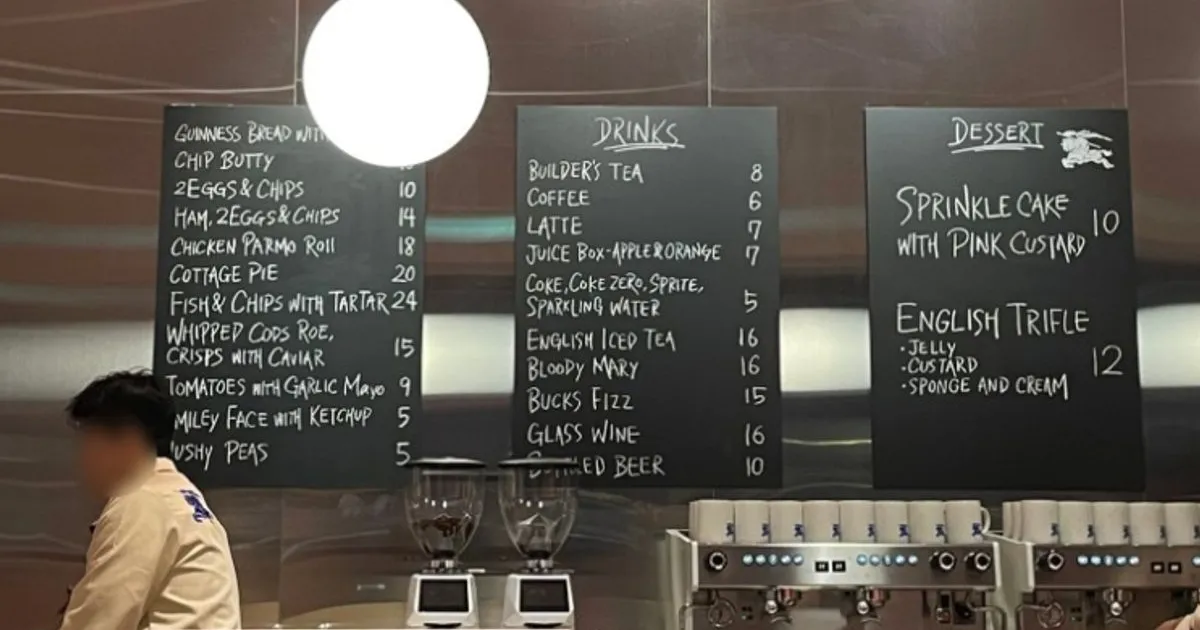 GUINNESS BREAD WITH
CHIP BUTTY
2 EGGS & CHIPS 10
HAM, 2 EGGS & CHIPS 14
CHICKEN PARMO ROLL 18
COTTAGE PIE 20
FISH & CHIPS WITH TARTAR 24
WHIPPED CODS ROE,
CRISPS WITH CAVIAR 15
TOMATOES WITH GARLIC MAYO 9
MILEY FACE WITH KETCHUP 5
USHY PEAS 5
DRINKS
BUILDER'S TEA 8
COFFEE 6
LATTE 7
JUICE BOX-APPLE & ORANGE 7
COKE, COKE ZERO, SPRITE,
SPARKLING WATER 5
ENGLISH ICED TEA 16
BLOODY MARY 16
BUCKS FIZZ 15
GLASS WINE 16
BEER 10
DESSERT
SPRINKLE CAKE
WITH PINK CUSTARD 10
ENGLISH TRIFLE
• JELLY
• CUSTARD 12
• SPONGE AND CREAM